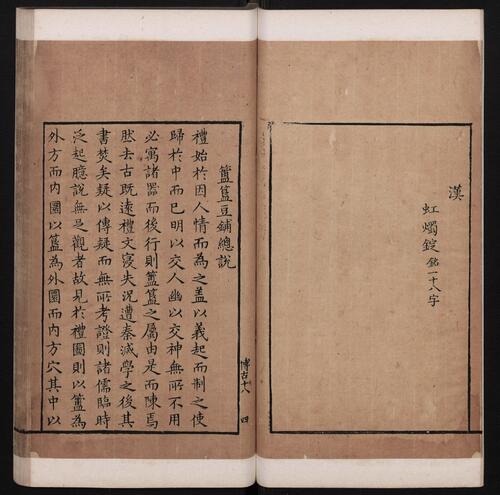 漢
虹燭錠銘一十八字
簠簋豆鋪總說
禮始於因人情而為之盖以義起而制之使
歸於中而已明以交人幽以交神無所不用
必寓諸器而後行則簠簋之屬由是而陳焉
然去古既遠禮文寖失況遭秦滅學之後其
書焚矣疑以傳疑而無所考證則諸儒臨時
泛起臆說無足觀者故見於禮圖則以簠為
外方而内圜以簋為外圜而内方穴其中以
博古十八
四